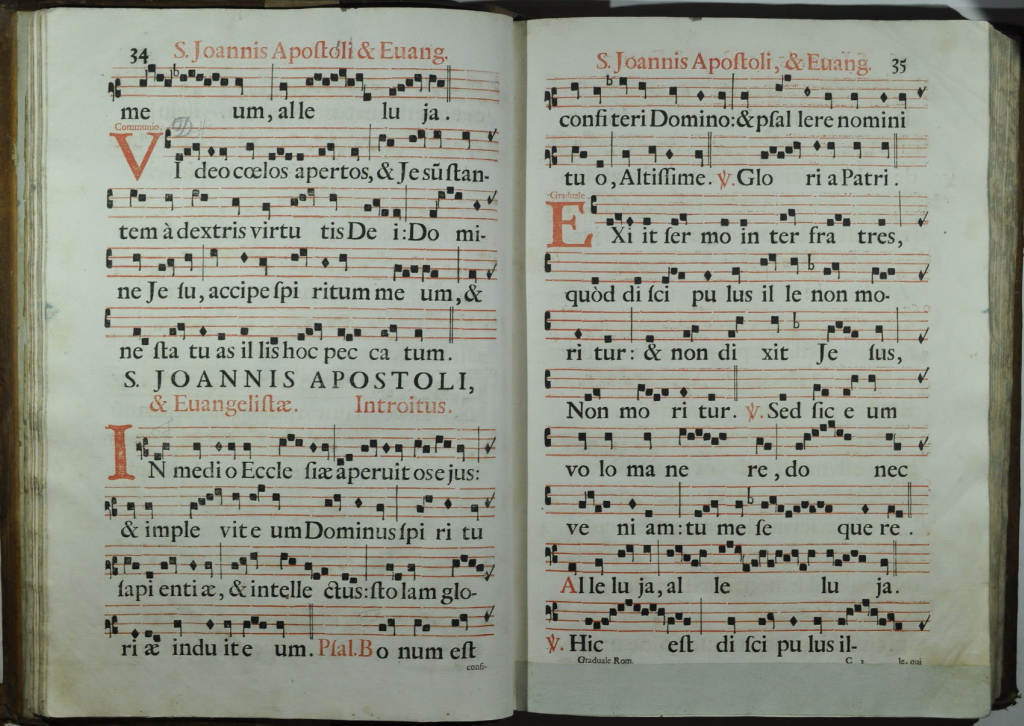 34 S. Joannis Apoſtoli & Euang.
me um, al le lu ja.
Communio.
VI deo cœlos apertos, & Je sũ ſtan-
tem à dextris virtu tis De i: Do mi-
ne Je ſu, accipe ſpi ritum me um, &
ne ſta tu as il lis hoc pec ca tum.
S. JOANNIS APOSTOLI,
& Euangeliſtæ. Introitus.
IN medi o Eccle ſiæ aperuit os ejus:
& imple vit e um Dominus ſpi ri tu
ſapi enti æ, & intelle ctus: ſto lam glo-
ri æ indu it e um. Pſal. Bo num eſt
confi-
S. Joannis Apoſtoli, & Euang. 35
confi teri Domino: & pſal lere nomini
tu o, Altiſſime. ℣. Glo ri a Patri.
Graduale
EXi it ſer mo in ter fra tres,
quòd di ſci pu lus il le non mo-
ri tur: & non di xit Je ſus,
Non mo ri tur. ℣. Sed ſic e um
vo lo ma ne re, do nec
ve ni am: tu me ſe que re.
Al le lu ja, al le lu ja.
℣. Hic eſt di ſci pu lus il-
Graduale Rom. C 2 le, qui